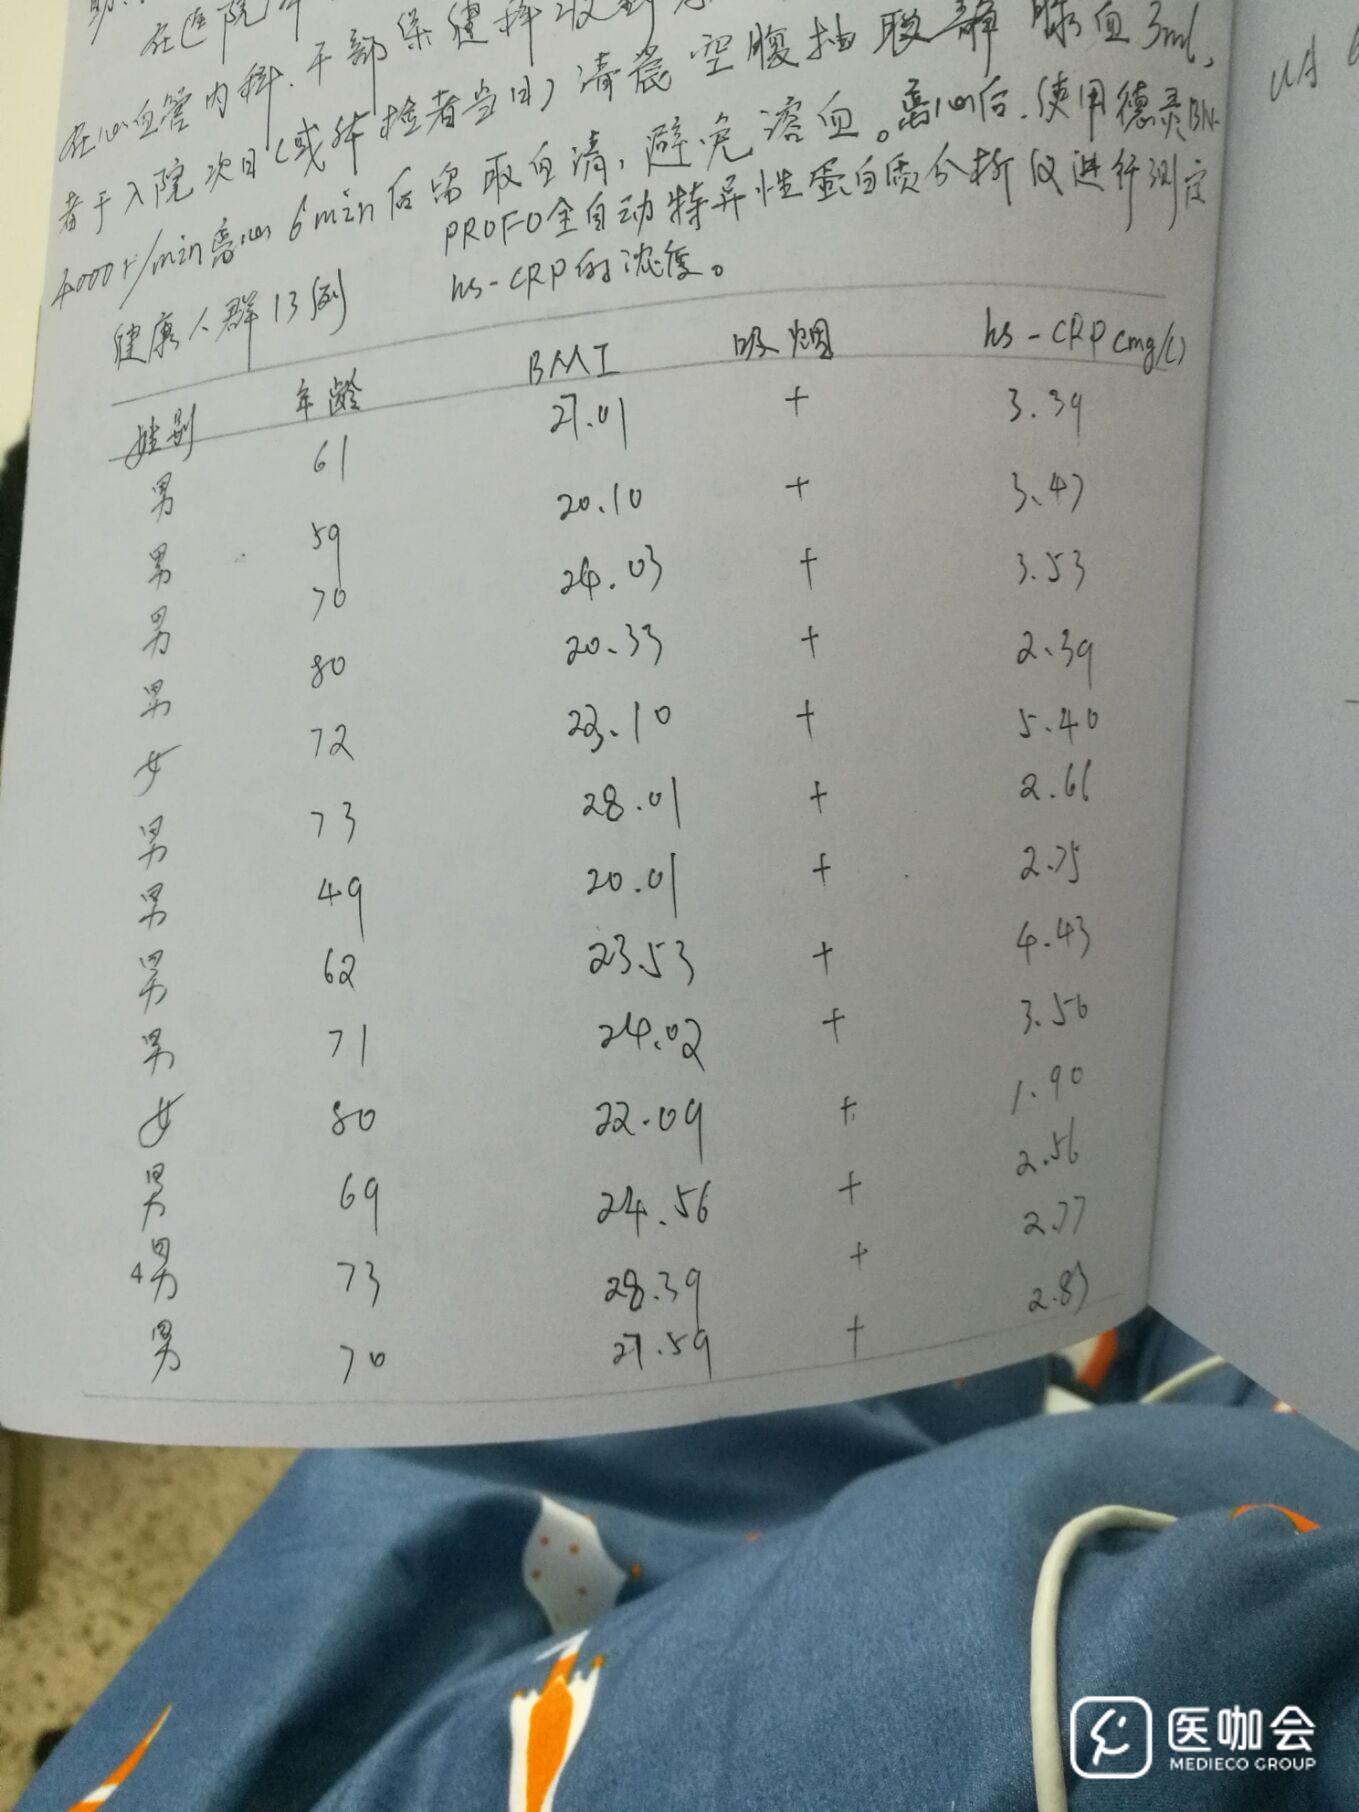 在医院
在心血管内科、干部保健科收
者于入院次日(或体检者当日)清晨空腹抽取静脉血3ml,
4000r/min离心6min后留取血清,避免溶血。离心后,使用德灵BN-
PROFO全自动特异性蛋白质分析仪进行测定
hs-CRP的浓度。
健康人群13例
姓别 年龄 BMI 吸烟 hs-CRP(mg/L)
男 61 27.01 + 3.39
男 59 20.10 + 3.47
男 70 24.03 + 3.53
男 80 20.33 + 2.39
女 72 23.10 + 5.40
男 73 28.01 + 2.66
男 49 20.01 + 2.75
男 62 23.53 + 4.43
男 71 24.02 + 3.56
女 80 22.09 + 1.90
男 69 24.56 + 2.56
男 73 28.39 + 2.77
男 70 27.59 + 2.83
UA
医咖会
MEDIECO GROUP